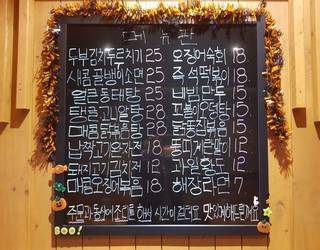 메뉴판
두부김치두루치기 25 오징어숙회 18
새콤골뱅이소면 25 즉석떡볶이 18
얼큰동태탕 25 네빔만두 15
탱글고니알탕 28 꼬불이우동탕 15
매콤닭볶음탕 28 닭똥집볶음 15
납짝고기온가전 18 똥띠 12
돼지고기김치전 12 과일황도 12
매콤오징어볶음 18 해장라면 7
주문과 동시에 조리를 해서 시간이 걸려요 맛있게해드릴게요
BOO!